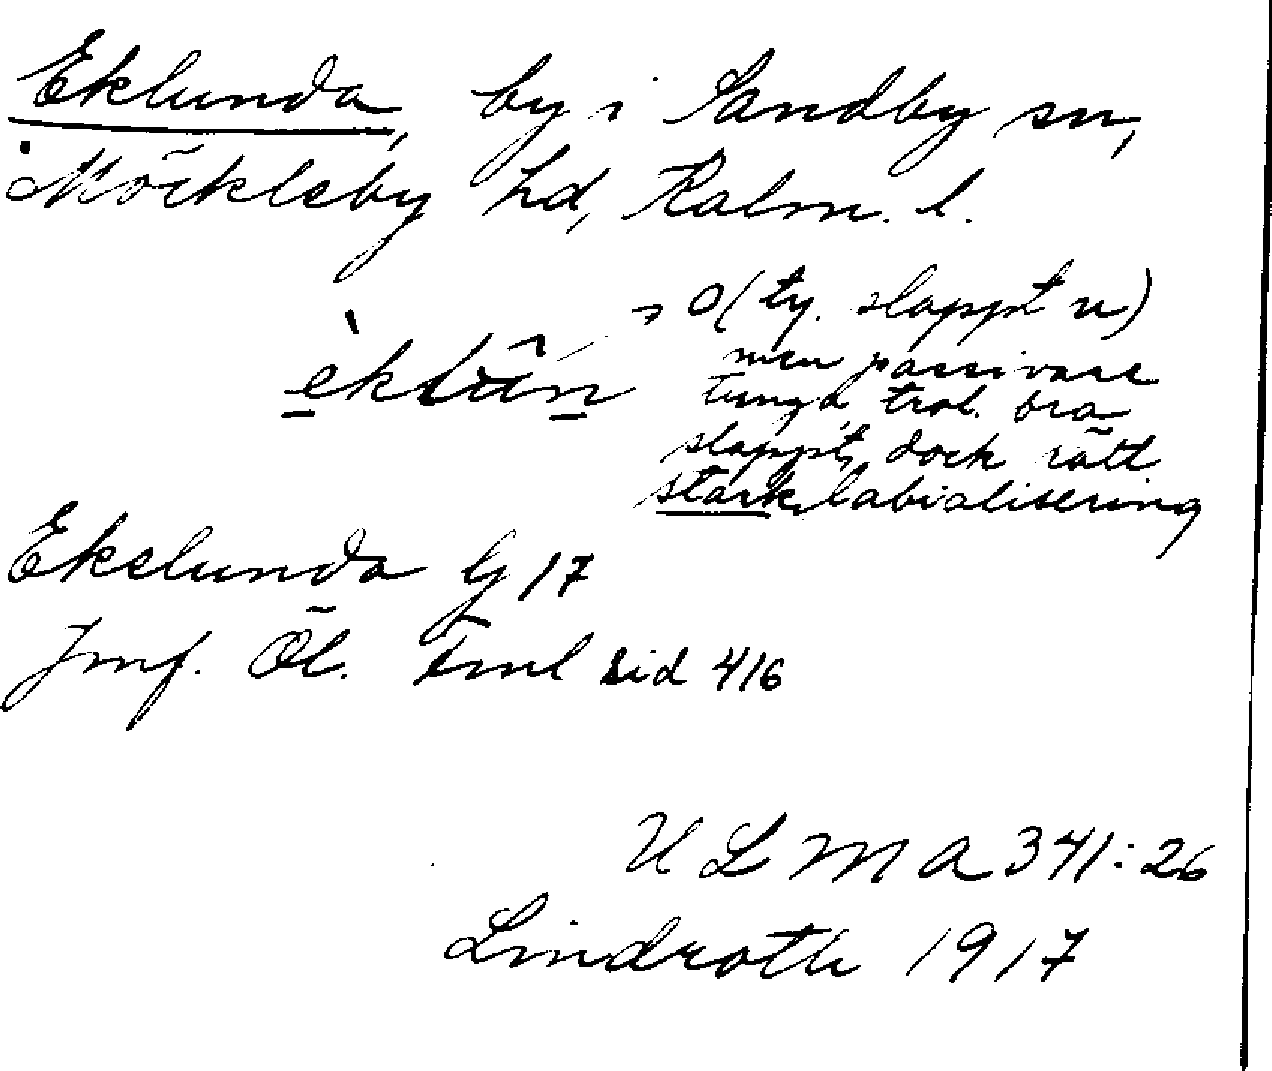 Eklunda, by i Sandby sn,
Möckleby hd, Kalm. l.
o (ty. slappt u)
men passivare
tunga, trol. bra
slappt, dock rätt
stark labialisering
Ekelunda G 17
Jmf. Öl. sid 416
ULMA 341:26
Lindroth 1917